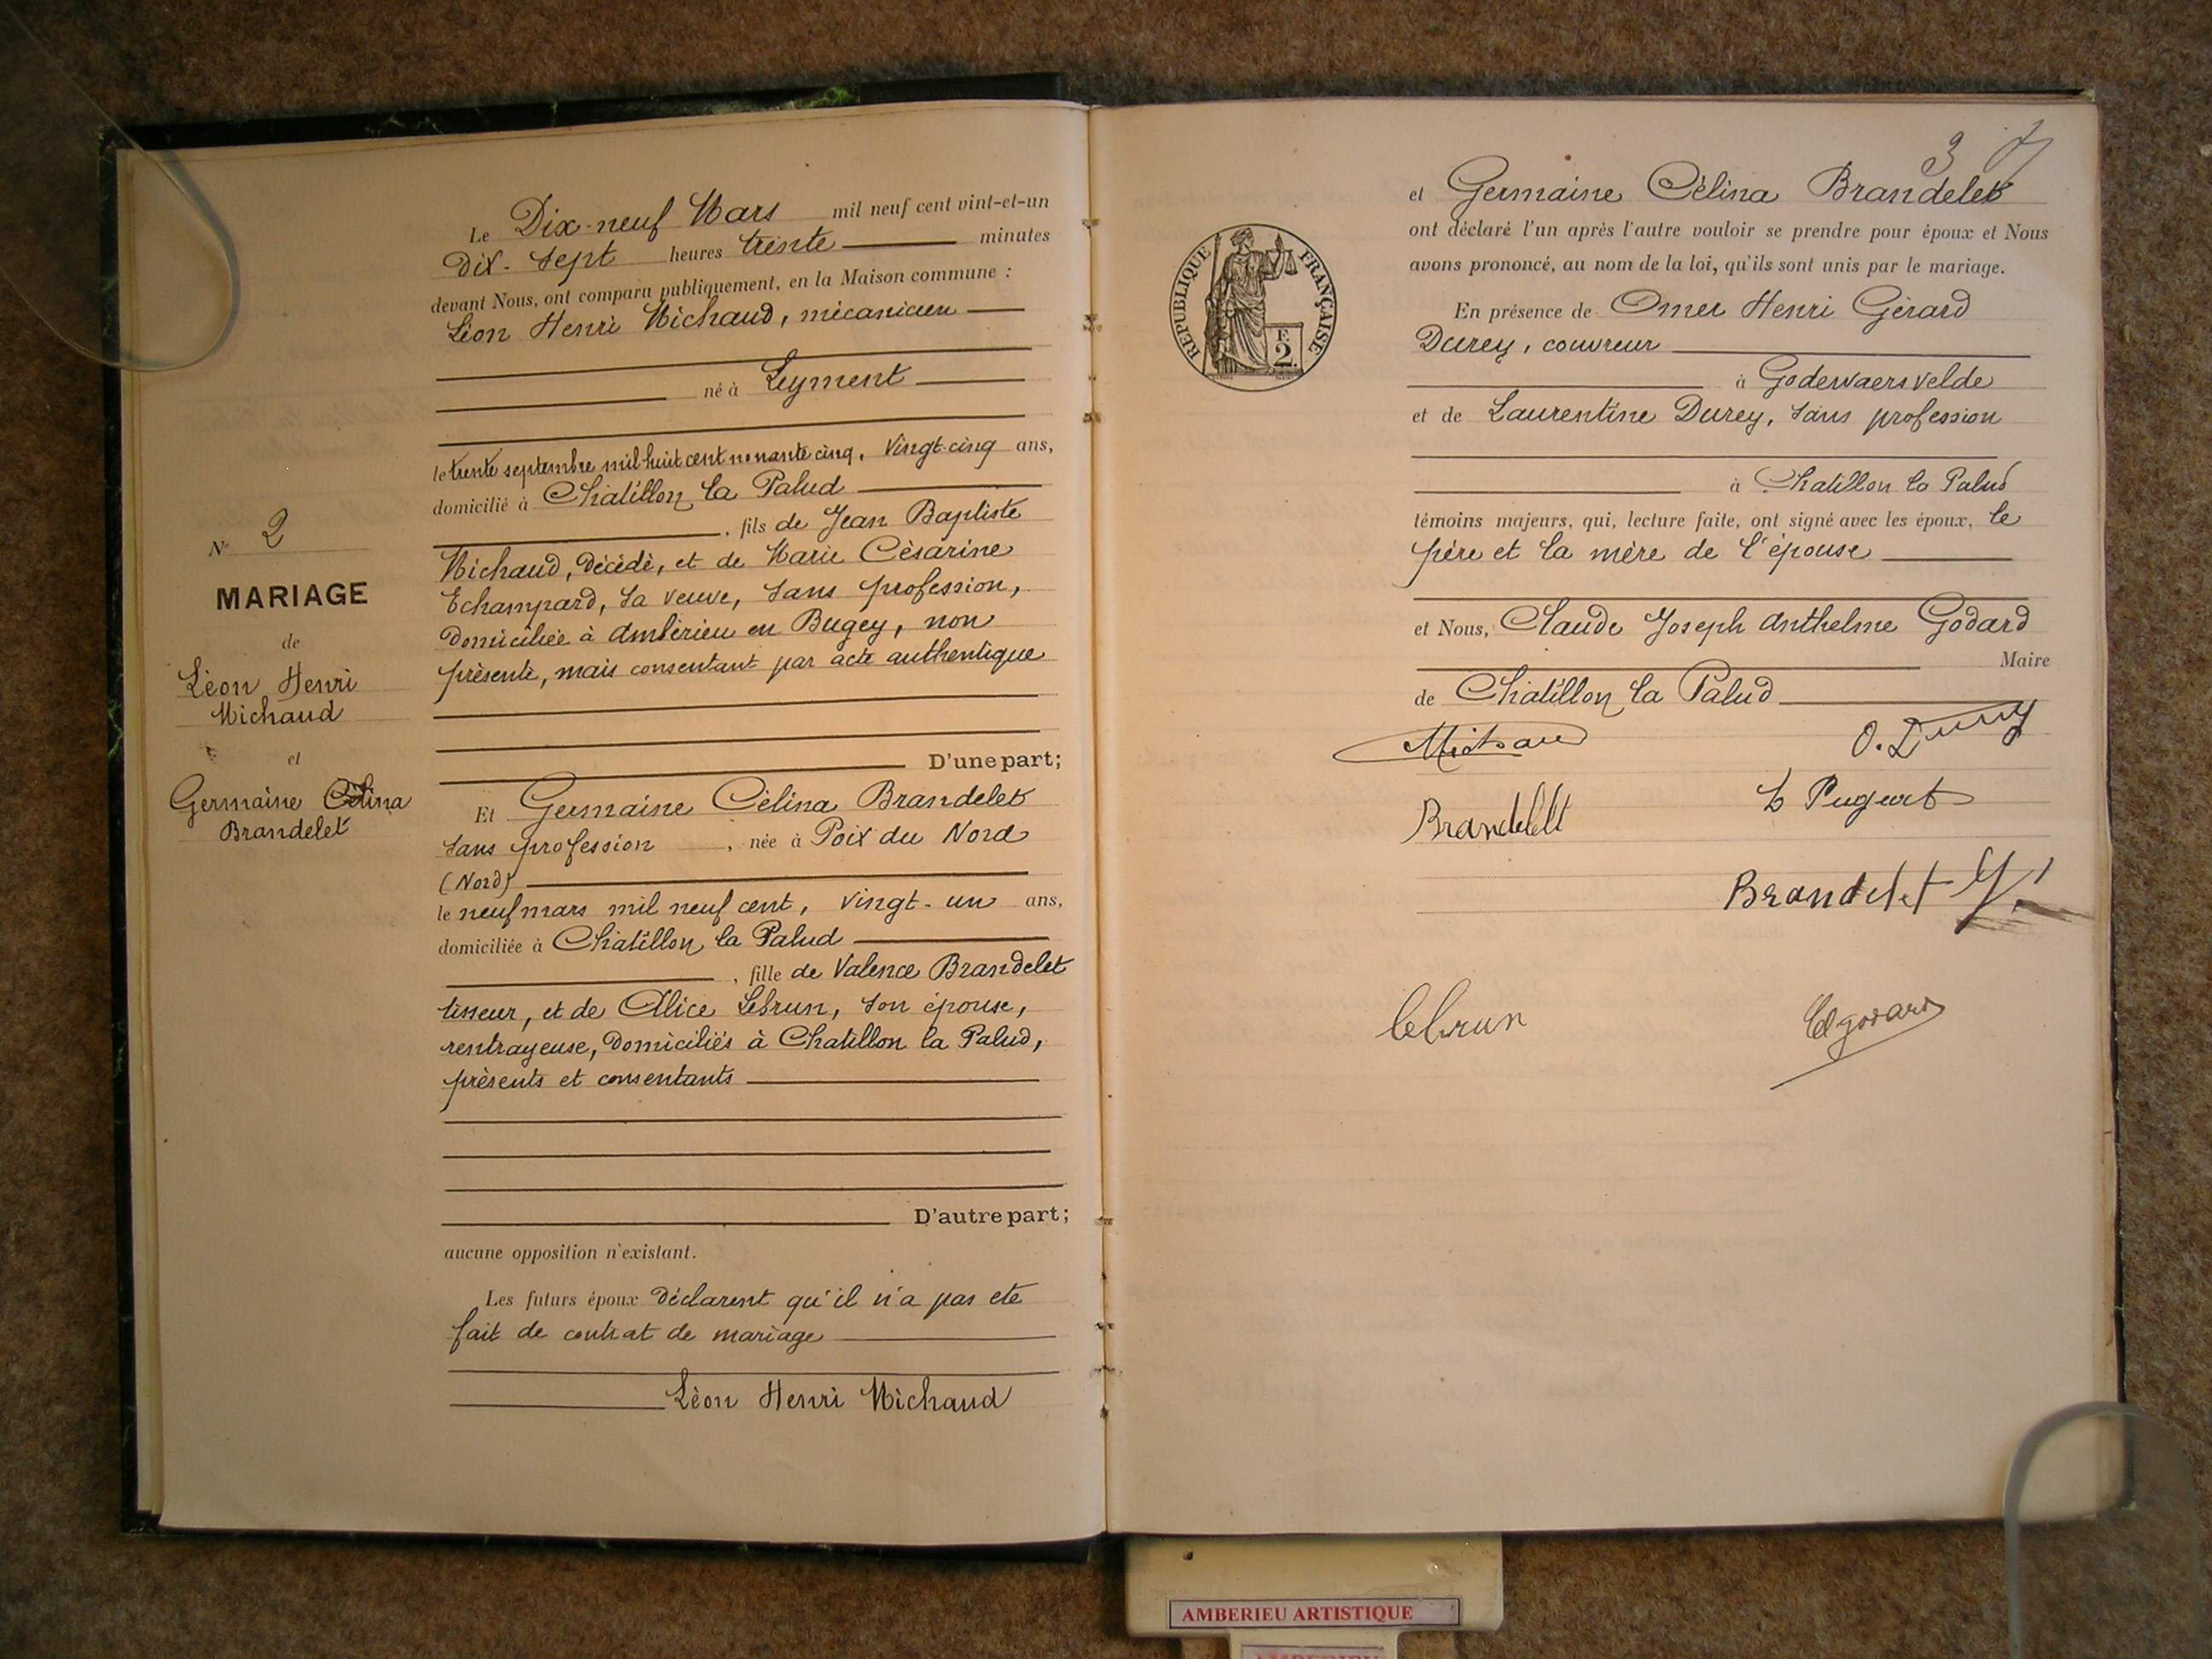 N° 2
MARIAGE
de
Léon Henri
Michaud
et
Germaine Célina
Brandelet
Le Dix-neuf Mars mil neuf cent vint-et-un
Dix-sept heures trente minutes
devant Nous, ont comparu publiquement, en la Maison commune :
Léon Henri Michaud, mécanicien
né à Leyment
le trente septembre mil huit cent nonante cinq, vingt-cinq ans,
domicilié à Chatillon la Palud
, fils de Jean Baptiste
Michaud, décédé, et de Marie Césarine
Echampard, sa veuve, sans profession,
domiciliée à Ambérieu en Bugey, non
présente, mais consentant par acte authentique
D'une part;
Et Germaine Célina Brandelet
sans profession , née à Poix du Nord
(Nord)
le neuf mars mil neuf cent, vingt-un ans,
domiciliée à Chatillon la Palud
, fille de Valence Brandelet
tisseur, et de Alice Lebrun, son épouse,
rentrayeuse, domiciliés à Chatillon la Palud,
présents et consentants
D'autre part;
aucune opposition n'existant.
Les futurs époux déclarent qu'il n'a pas été
fait de contrat de mariage
Léon Henri Michaud
3
RÉPUBLIQUE FRANÇAISE
E
2.
et Germaine Célina Brandelet
ont déclaré l'un après l'autre vouloir se prendre pour époux et Nous
avons prononcé, au nom de la loi, qu'ils sont unis par le mariage.
En présence de Omer Henri Gérard
Durey, couvreur
à Godewaersvelde
et de Laurentine Durey, sans profession
à Chatillon la Palud
témoins majeurs, qui, lecture faite, ont signé avec les époux, le
père et la mère de l'épouse
et Nous, Claude Joseph Anthelme Godard
Maire
de Chatillon la Palud
O. Durey
Brandelet
Brandelet
lebrun
AMBERIEU ARTISTIQUE